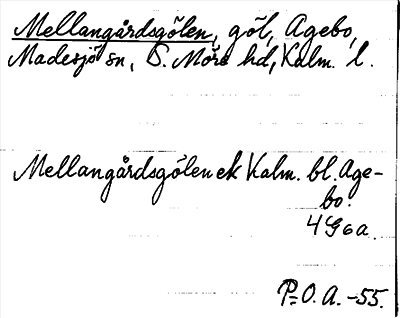 Mellangårdsgölen, göl, Agebo,
Madesjö sn, S. Möre hd, Kalm. l.
Mellangårdsgölen ek Kalm. bl. Age-
bo.
4G6a.
P-O.A. -55.